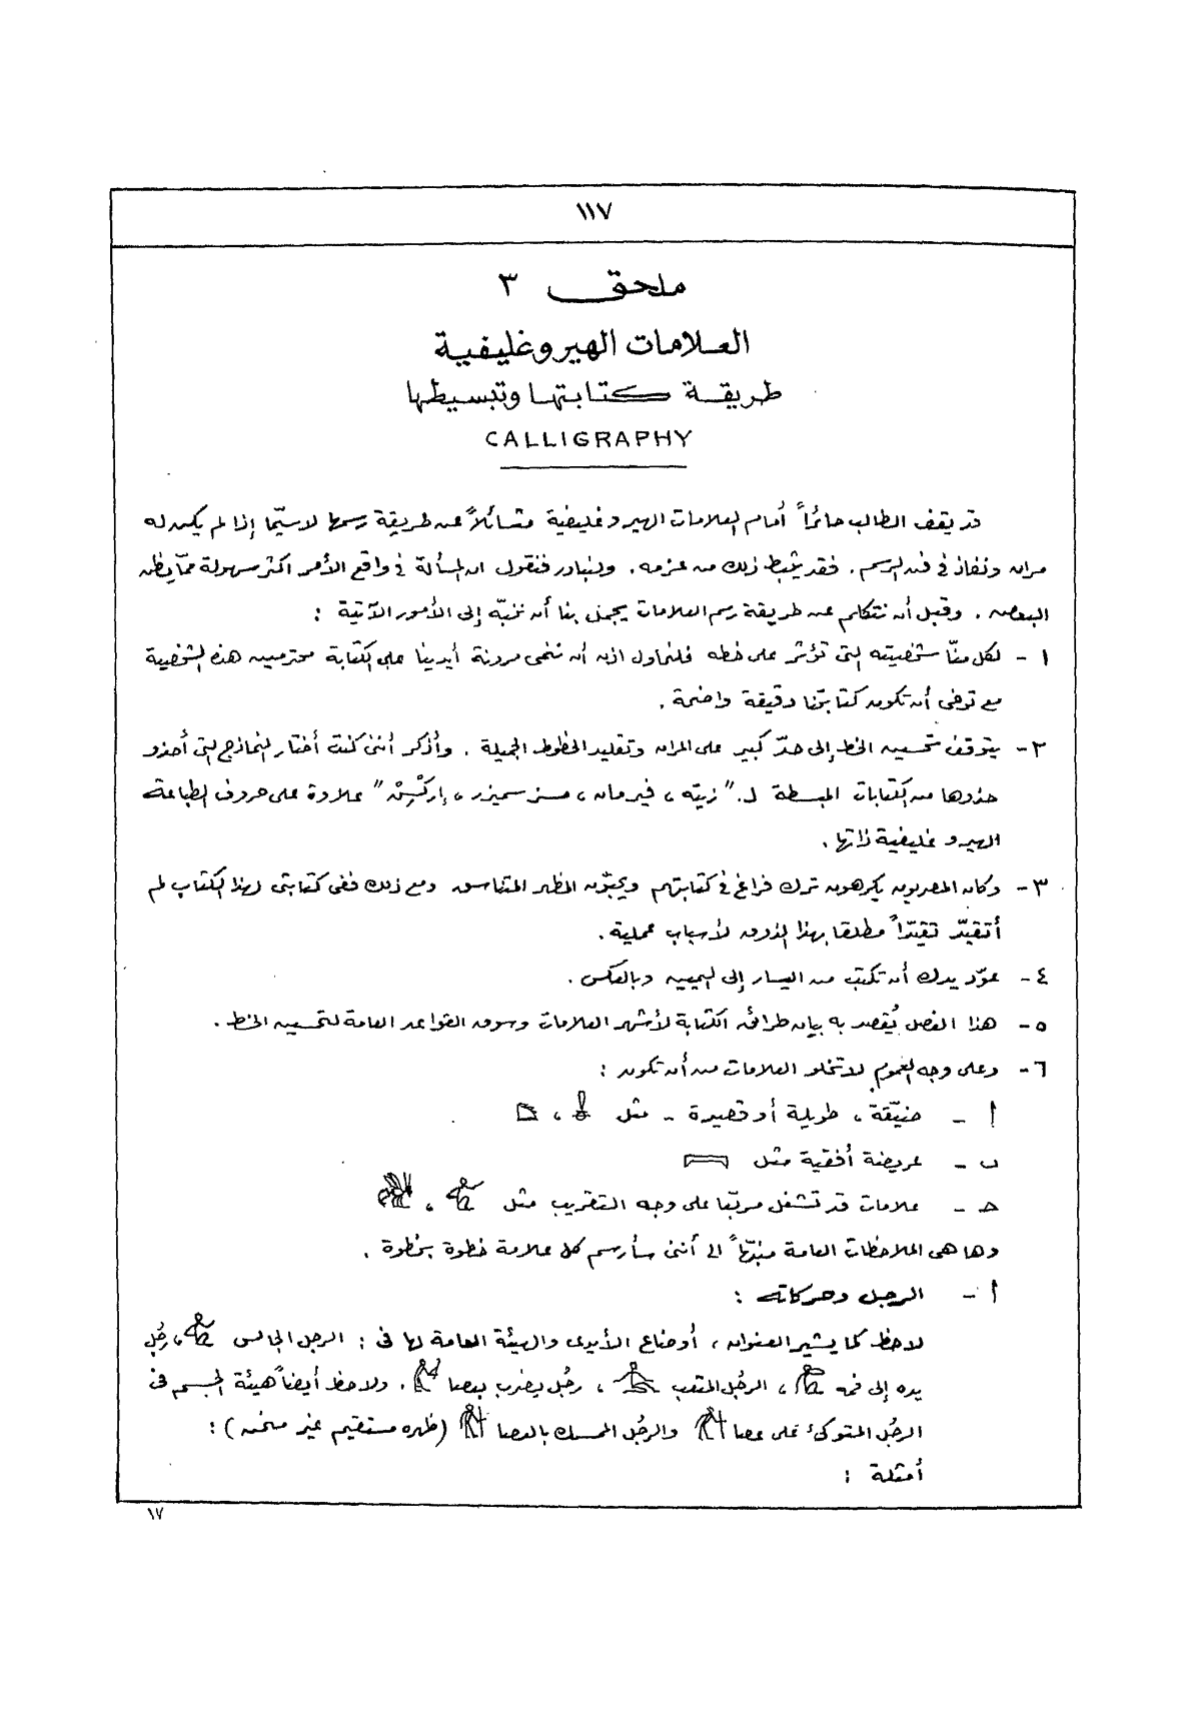 ١١٧
ملحق ٣
العلامات الهيروغليفية
طريقة كتابتها وتبسيطها
CALLIGRAPHY
قد يقف الطالب حائراً أمام العلامات الهيروغليفية متسائلاً عن طريقة رسمها لاسيّما إذا لم يكن له
مران ونفاذ فى فن الرسم. فقد يثبط ذلك من عزمه. ولنبادر فنقول ان المسألة فى واقع الأمر اكثر سهولة ممّا يظن
البعض. وقبل أن نتكلم عن طريقة رسم العلامات يجمل بنا أن ننبّه إلى الأمور الآتية :
١ - لكل منّا شخصيته التى تؤثر على خطه فلنحاول اذن أن ننمى مرونة أيدينا على الكتابة محترمين هذه الشخصية
مع توخى أن تكون كتابتنا دقيقة واضحة.
٢ - يتوقف تحسين الخط إلى حدّ كبير على المران وتقليد الخطوط الجميلة. وأذكر أننى كنت أختار النماذج التى أحذو
حذوها من الكتابات المبسطة لـ "زيته، فيرمان، مسز سميذر، إركْسِنْ" علاوة على حروف الطباعة
الهيروغليفية ذاتها.
٣ - وكان المصريون يكرهون ترك فراغ فى كتابتهم ويحبّون المظهر المتناسق ومع ذلك ففى كتابتى لهذا الكتاب لم
أتقيّد تقيّداً مطلقا بهذا الذوق لأسباب عملية.
٤ - عوّد يدك أن تكتب من اليسار إلى اليمين وبالعكس.
٥ - هذا الفصل يُقصد به بيان طرائق الكتابة لأشهر العلامات وسوق القواعد العامة لتحسين الخط.
٦ - وعلى وجه العموم لا تخلو العلامات من أن تكون :
أ - ضيّقة، طويلة أو قصيرة - مثل ،
ب - عريضة أفقية مثل
حـ - علامات قد تشغل مربّعا على وجه التقريب مثل ،
وها هى الملاحظات العامة منبّهاً الى أننى سأرسم كل علامة خطوة بخطوة.
أ - الرجل وحركاته :
لاحظ كما يشير العنوان، أوضاع الأيدى والهيئة العامة لها فى : الرجل الجالس ، رجُل
يده إلى فمه ، الرجُل المتعب ، رجُل يضرب بعصا . ولاحظ أيضاً هيئة الجسم فى
الرجُل المتوكئ على عصا والرجُل الممسك بالعصا (ظهره مستقيم غير منحن) :
أمثلة :
١٧